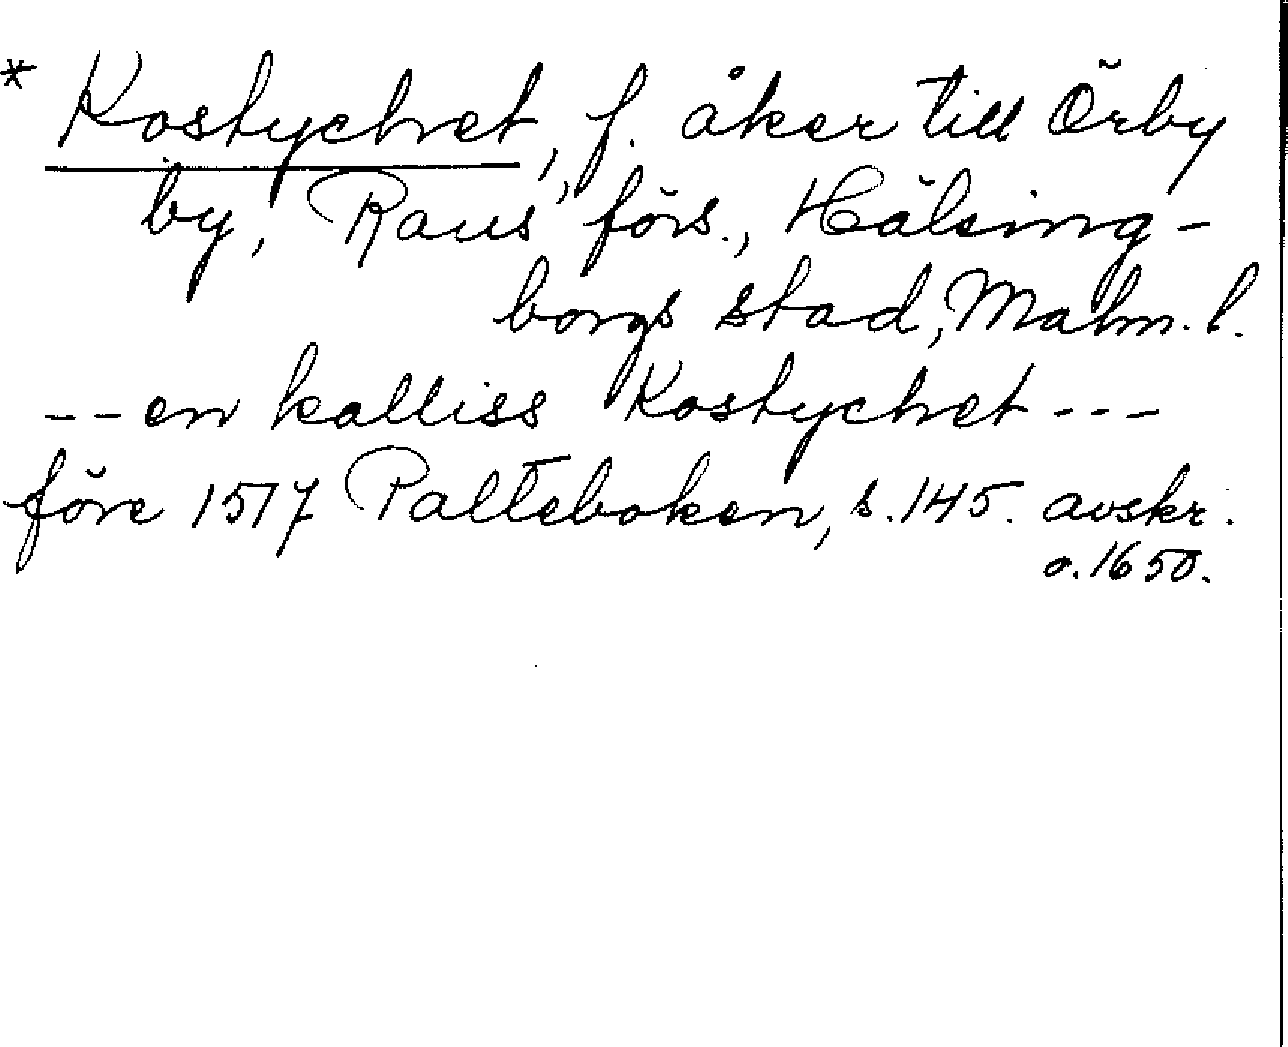 * Kostychet, f. åker till Örby
by, Raus förs., Hälsing-
borgs stad, Malm. l.
-- en kalliss Kostychet ---
före 1517 Palteboken, s. 145. avskr.
o. 1650.